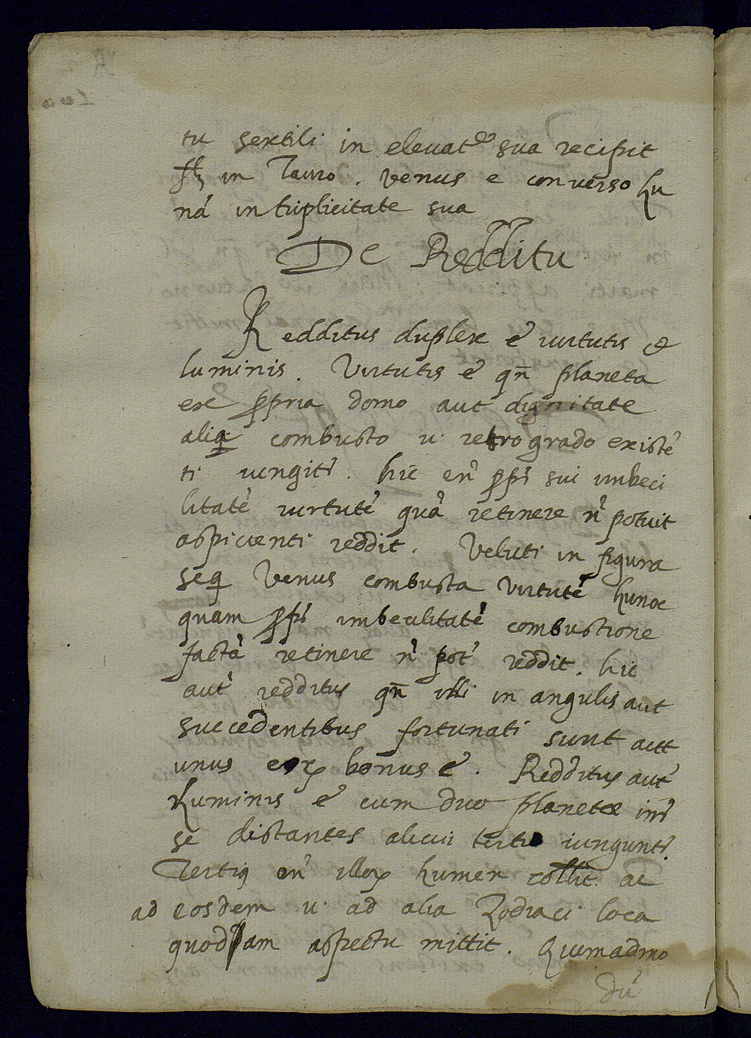 tu sextili in eleuatõe sua recipit
♄ in Tauro. Venus e conuerso Lu
nã in triplicitate sua
De Redditu
Redditus duplex ẽ uirtutis &
luminis. Virtutis ẽ qñ planeta
ex ꝓpria domo aut dignitate
aliq combusto u retrogrado existẽ
ti iungitr̃. hic eñ ꝓpt̃ sui imbeci
litatẽ uirtutẽ quã retinere ñ potuit
aspicienti reddit. Veluti in figura
seq Venus combusta Virtutẽ Lunae
quam ꝓpt̃ imbecilitatẽ combustione
factã retinere ñ potẽ reddit. hic
aut̃ redditus qñ illi in angulis aut
succedentibus fortunati sunt aut
unus eoꝝ bonus ẽ. Redditus aut̃
Luminis ẽ cum duo planetae int̃
se distantes alicui tertio iungunt̃.
Tertiꝰ eñ illoꝝ Lumen collit ac
ad eosdem u ad alia Zodiaci loca
quoddam aspectu mittit. Quemadmo
dũ